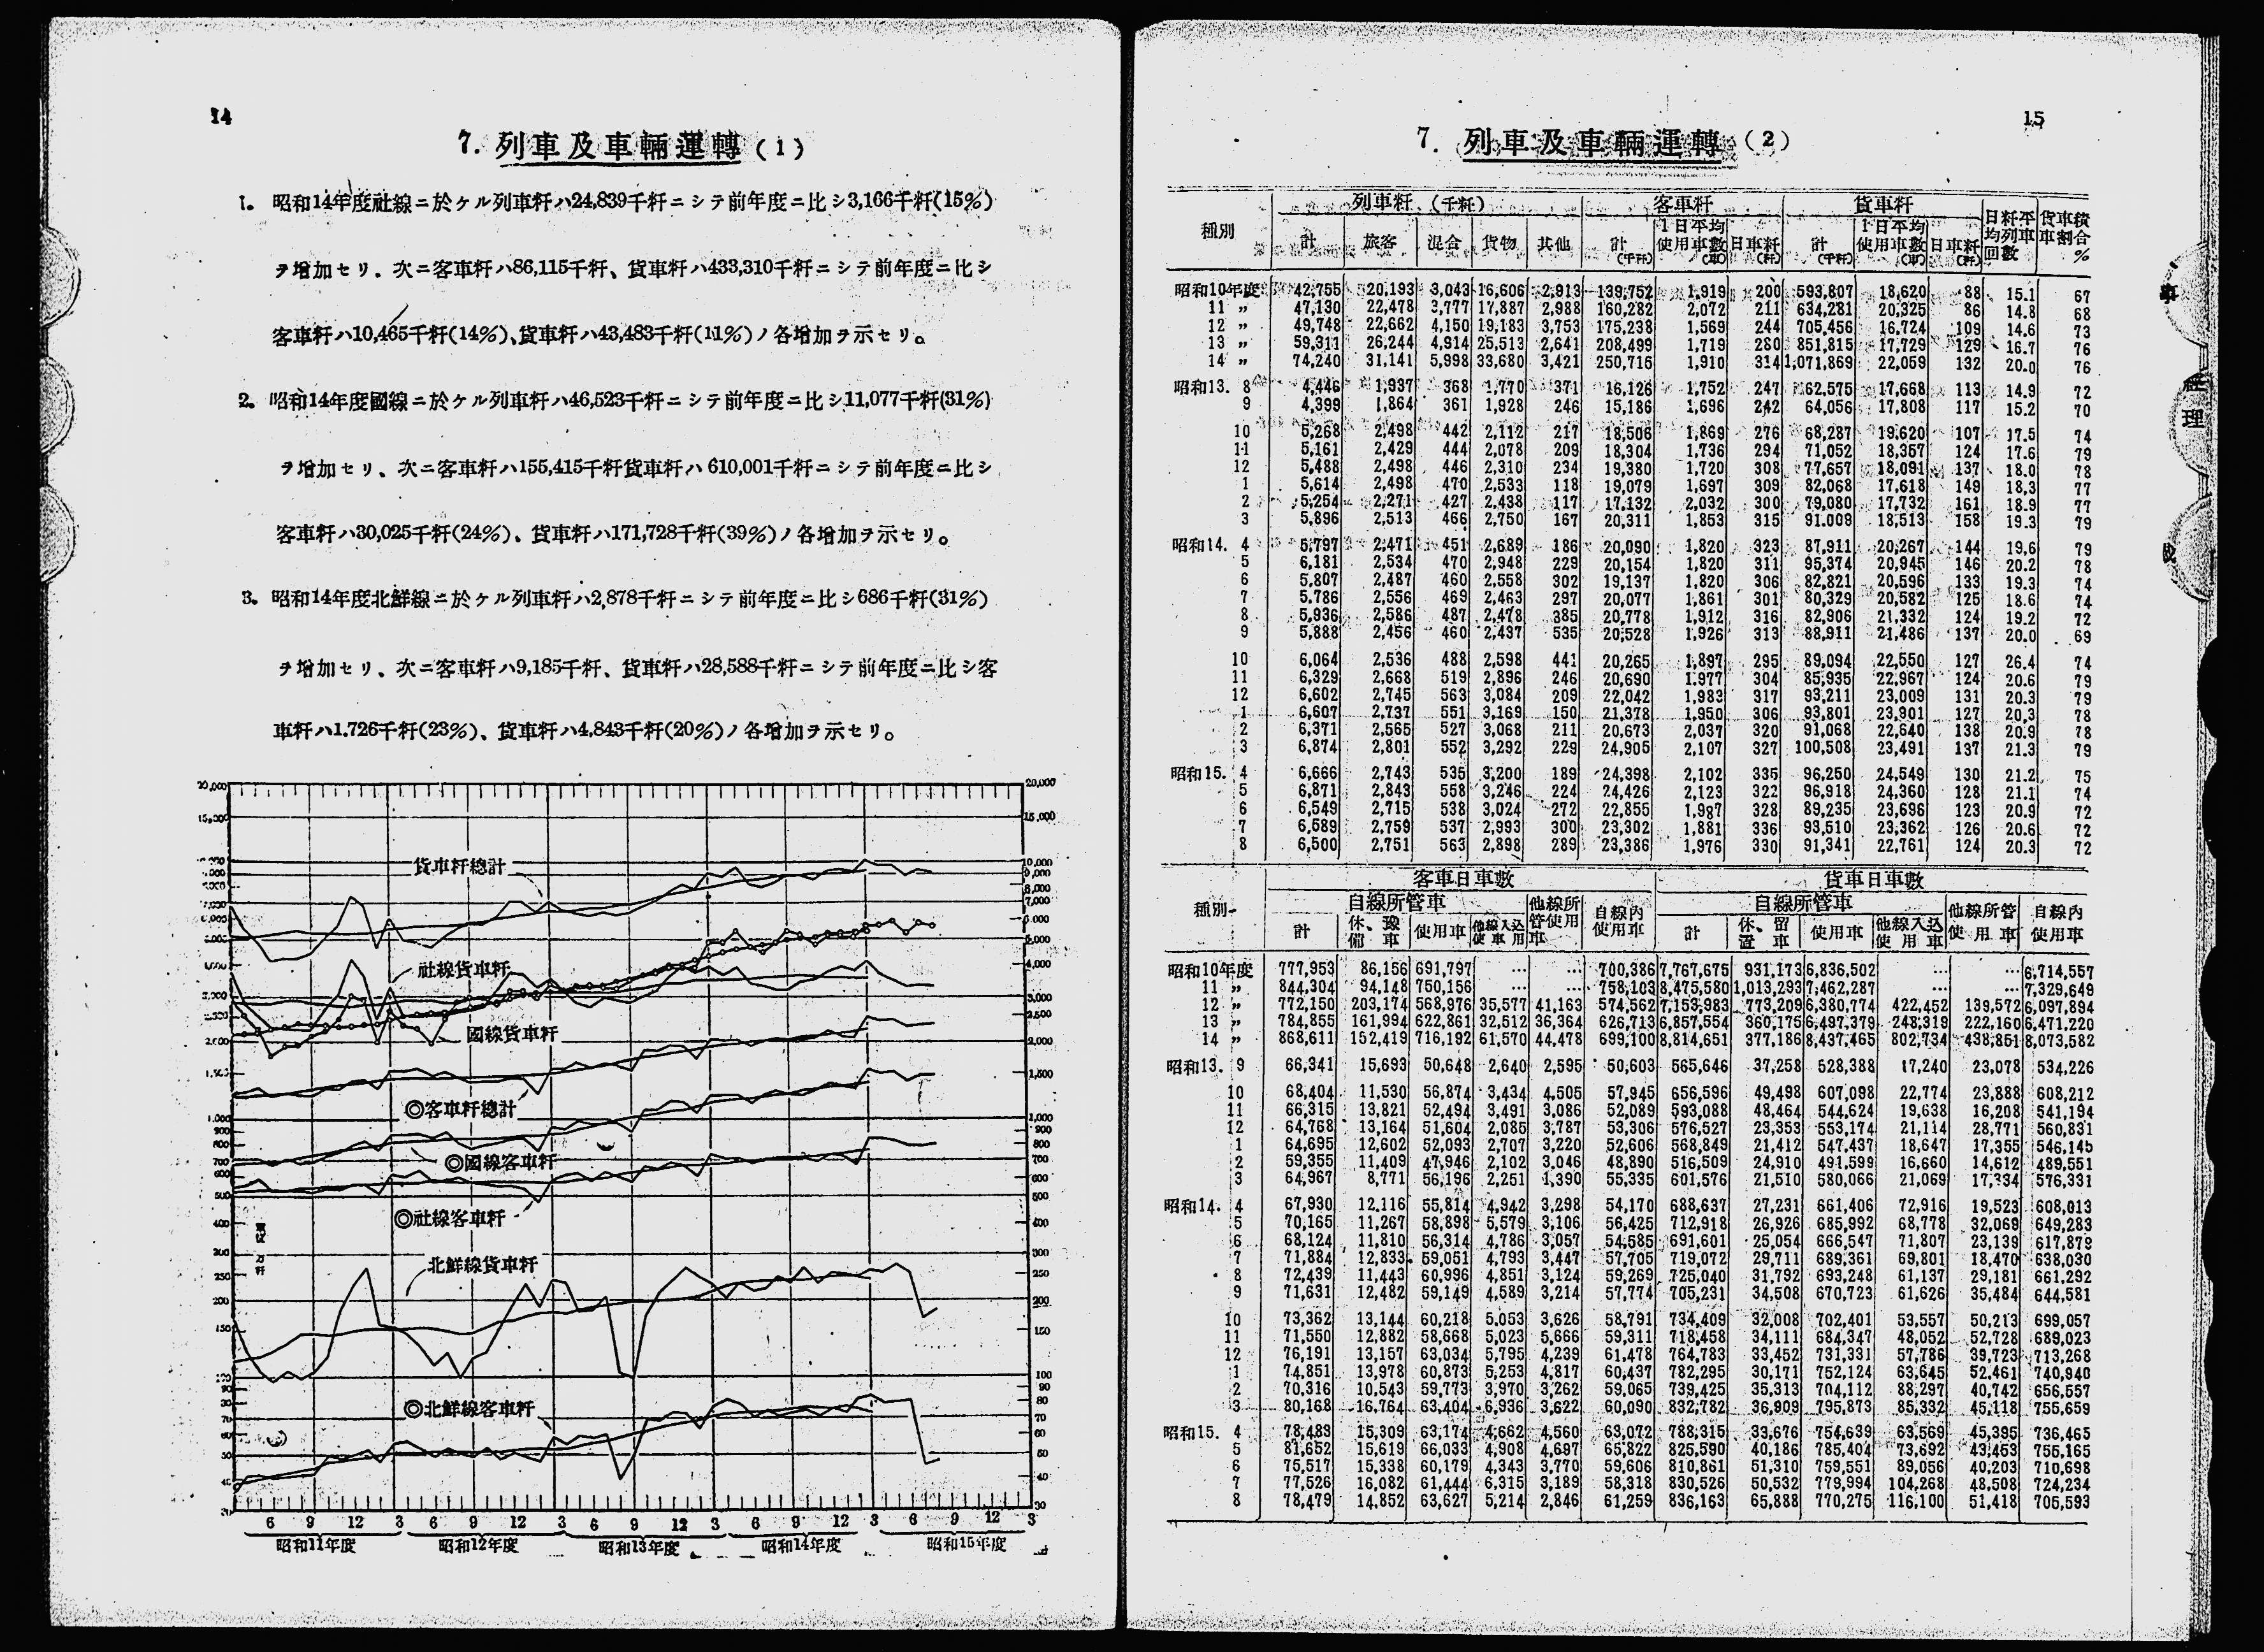 14
7. 列車及車輛運轉（1）
1. 昭和14年度社線ニ於ケル列車粁ハ24,839千粁ニシテ前年度ニ比シ3,166千粁(15%)
ヲ增加セリ、次ニ客車粁ハ86,115千粁、貨車粁ハ433,310千粁ニシテ前年度ニ比シ
客車粁ハ10,465千粁(14%)、貨車粁ハ43,483千粁(11%)ノ各增加ヲ示セリ。
2. 昭和14年度國線ニ於ケル列車粁ハ46,523千粁ニシテ前年度ニ比シ11,077千粁(31%)
ヲ增加セリ、次ニ客車粁ハ155,415千粁貨車粁ハ610,001千粁ニシテ前年度ニ比シ
客車粁ハ30,025千粁(24%)、貨車粁ハ171,728千粁(39%)ノ各增加ヲ示セリ。
3. 昭和14年度北鮮線ニ於ケル列車粁ハ2,878千粁ニシテ前年度ニ比シ686千粁(31%)
ヲ增加セリ、次ニ客車粁ハ9,185千粁、貨車粁ハ28,588千粁ニシテ前年度ニ比シ客
車粁ハ1.726千粁(23%)、貨車粁ハ4,843千粁(20%)ノ各增加ヲ示セリ。
貨車粁總計
社線貨車粁
國線貨車粁
◎客車粁總計
◎國線客車粁
◎社線客車粁
北鮮線貨車粁
◎北鮮線客車粁
6 9 12 3 6 9 12 3 6 9 12 3 6 9 12 3 6 9 12 3
昭和11年度 昭和12年度 昭和13年度 昭和14年度 昭和15年度
15
7. 列車及車輛運轉（2）
種別 列車粁（千粁） 客車粁 貨車粁 日粁平均列車回數 貨車積車割合%
計 旅客 混合 貨物 其他 計(千粁) 1日平均使用車數(車) 日車粁(粁) 計(千粁) 1日平均使用車數(車) 日車粁(粁)
昭和10年度 42,755 20,193 3,043 16,606 2,913 139,752 1,919 200 593,807 18,620 88 15.1 67
11 〃 47,130 22,478 3,777 17,887 2,988 160,282 2,072 211 634,281 20,325 86 14.8 68
12 〃 49,748 22,662 4,150 19,183 3,753 175,238 1,569 244 705,456 16,724 109 14.6 73
13 〃 59,311 26,244 4,914 25,513 2,641 208,499 1,719 280 851,815 17,729 129 16.7 76
14 〃 74,240 31,141 5,998 33,680 3,421 250,716 1,910 314 1,071,869 22,059 132 20.0 76
昭和13. 8 4,446 1,937 368 1,770 371 16,126 1,752 247 62,575 17,668 113 14.9 72
9 4,399 1,864 361 1,928 246 15,186 1,696 242 64,056 17,808 117 15.2 70
10 5,268 2,498 442 2,112 217 18,506 1,869 276 68,287 19,620 107 17.5 74
11 5,161 2,429 444 2,078 209 18,304 1,736 294 71,052 18,357 124 17.6 79
12 5,488 2,498 446 2,310 234 19,380 1,720 308 77,657 18,091 137 18.0 78
1 5,614 2,498 470 2,533 118 19,079 1,697 309 82,068 17,618 149 18,3 77
2 5,254 2,271 427 2,438 117 17,132 2,032 300 79,080 17,732 161 18.9 77
3 5,896 2,513 466 2,750 167 20,311 1,853 315 91.009 18,513 158 19.3 79
昭和14. 4 5,797 2,471 451 2,689 186 20,090 1,820 323 87,911 20,267 144 19,6 79
5 6,181 2,534 470 2,948 229 20,154 1,820 311 95,374 20,945 146 20.2 78
6 5,807 2,487 460 2,558 302 19,137 1,820 306 82,821 20,596 133 19.3 74
7 5.786 2,556 469 2,463 297 20,077 1,861 301 80,329 20,582 125 18.6 74
8 5,936 2,586 487 2,478 385 20,778 1,912 316 82,906 21,332 124 19.2 72
9 5,888 2,456 460 2,437 535 20,528 1,926 313 88,911 21,486 137 20.0 69
10 6,064 2,536 488 2,598 441 20,265 1,897 295 89,094 22,550 127 26.4 74
11 6,329 2,668 519 2,896 246 20,690 1.977 304 85,935 22,967 124 20.6 79
12 6,602 2,745 563 3,084 209 22,042 1,983 317 93,211 23,009 131 20.3 79
1 6,607 2,737 551 3,169 150 21,378 1,950 306 93,801 23,901 127 20,3 78
2 6,371 2,565 527 3,068 211 20,673 2,037 320 91,068 22,640 138 20.9 78
3 6,874 2,801 552 3,292 229 24,905 2,107 327 100,508 23,491 137 21.3 79
昭和15. 4 6,666 2,743 535 3,200 189 24,398 2,102 335 96,250 24,549 130 21.2 75
5 6,871 2,843 558 3,246 224 24,426 2,123 322 96,918 24,360 128 21.1 74
6 6,549 2,715 538 3,024 272 22,855 1,987 328 89,235 23,696 123 20.9 72
7 6,589 2,759 537 2,993 300 23,302 1,881 336 93,510 23,362 126 20.6 72
8 6,500 2,751 563 2,898 289 23,386 1,976 330 91,341 22,761 124 20.3 72
種別 客車日車數 貨車日車數
自線所管車 他線所管使用車 自線內使用車 自線所管車 他線所管使用車 自線內使用車
計 休、豫備車 使用車 他線入込使車用 計 休、留置車 使用車 他線入込使用車
昭和10年度 777,953 86,156 691,797 … … 700,386 7,767,675 931,173 6,836,502 … … 6,714,557
11 〃 844,304 94,148 750,156 … … 758,103 8,475,580 1,013,293 7,462,287 … … 7,329,649
12 〃 772,150 203,174 568,976 35,577 41,163 574,562 7,153,983 773,209 6,380,774 422,452 139,572 6,097,894
13 〃 784,855 161,994 622,861 32,512 36,364 626,713 6,857,554 360,175 6,497,379 248,319 222,160 6,471,220
14 〃 868,611 152,419 716,192 61,570 44,478 699,100 8,814,651 377,186 8,437,465 802,734 438,851 8,073,582
昭和13. 9 66,341 15,693 50,648 2,640 2,595 50,603 565,646 37,258 528,388 17,240 23,078 534,226
10 68,404 11,530 56,874 3,434 4,505 57,945 656,596 49,498 607,098 22,774 23,888 608,212
11 66,315 13,821 52,494 3,491 3,086 52,089 593,088 48,464 544,624 19,638 16,208 541,194
12 64,768 13,164 51,604 2,085 3,787 53,306 576,527 23,353 553,174 21,114 28,771 560,831
1 64,695 12,602 52,093 2,707 3,220 52,606 568,849 21,412 547,437 18,647 17,355 546,145
2 59,355 11,409 47,946 2,102 3,046 48,890 516,509 24,910 491,599 16,660 14,612 489,551
3 64,967 8,771 56,196 2,251 1,390 55,335 601,576 21,510 580,066 21,069 17,334 576,331
昭和14. 4 67,930 12,116 55,814 4,942 3,298 54,170 688,637 27,231 661,406 72,916 19,523 608,013
5 70,165 11,267 58,898 5,579 3,106 56,425 712,918 26,926 685,992 68,778 32,069 649,283
6 68,124 11,810 56,314 4,786 3,057 54,585 691,601 25,054 666,547 71,807 23,139 617,879
7 71,884 12,833 59,051 4,793 3,447 57,705 719,072 29,711 689,361 69,801 18,470 638,030
8 72,439 11,443 60,996 4,851 3,124 59,269 725,040 31,792 693,248 61,137 29,181 661,292
9 71,631 12,482 59,149 4,589 3,214 57,774 705,231 34,508 670,723 61,626 35,484 644,581
10 73,362 13,144 60,218 5,053 3,626 58,791 734,409 32,008 702,401 53,557 50,213 699,057
11 71,550 12,882 58,668 5,023 5,666 59,311 718,458 34,111 684,347 48,052 52,728 689,023
12 76,191 13,157 63,034 5,795 4,239 61,478 764,783 33,452 731,331 57,786 39,723 713,268
1 74,851 13,978 60,873 5,253 4,817 60,437 782,295 30,171 752,124 63,645 52,461 740,940
2 70,316 10,543 59,773 3,970 3,262 59,065 739,425 35,313 704,112 88,297 40,742 656,557
3 80,168 16,764 63,404 6,936 3,622 60,090 832,782 36,909 795,873 85,332 45,118 755,659
昭和15. 4 78,483 15,309 63,174 4,662 4,560 63,072 788,315 33,676 754,639 63,569 45,395 736,465
5 81,652 15,619 66,033 4,908 4,697 65,822 825,590 40,186 785,404 73,692 43,453 755,165
6 75,517 15,338 60,179 4,343 3,770 59,606 810,861 51,310 759,551 89,056 40,203 710,698
7 77,526 16,082 61,444 6,315 3,189 58,318 830,526 50,532 779,994 104,268 48,508 724,234
8 78,479 14,852 63,627 5,214 2,846 61,259 836,163 65,888 770,275 116,100 51,418 705,593